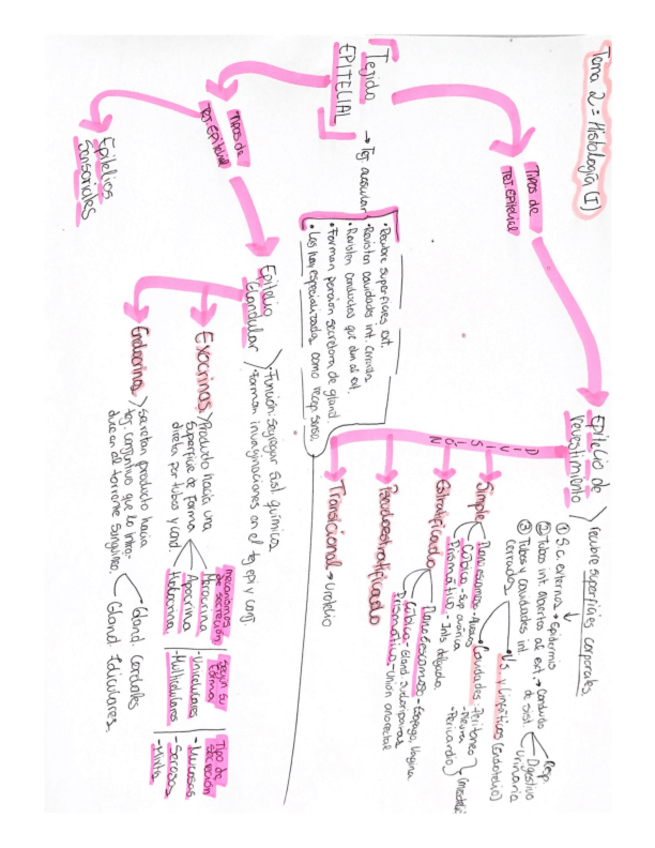 Tema 2 = Histología (I)
Tejido
EPITELIAL
→ Tej. avascular
• Recubre superficies ext.
• Revisten cavidades int. cerradas
• Revisten conductos que dan al ext.
• Forman porción secretora de gland.
• Las hay especializadas como recep. senso.
Tipos de
Tej. Epitelial
Epitelio de
revestimiento
recubre superficies corporales
① S.c. externos → Epidermis
② Tubos int. abiertos al ext. → Conducto
de sist.
Resp.
Digestivo
Urinaria
③ Tubos y cavidades int.
cerrados
V.s. y Linfáticos (Endotelio)
Cavidades
- Peritoneo
- Pleura
- Pericardio
DIVISIÓN
Simple
Planoescamoso
Cúbico - Sup. ovárica
Prismático - Ints. delgado
Estratificado
Planoescamoso - Esófago, Vagina
Cúbico - Gland. sudoríparas
Prismático - Unión anorectal
Pseudoestratificado
Transicional → Urotelio
Tipos de
Tej. Epitelial
Epitelio
Glandular
Función: Segregar sist. químicas
Forman invaginaciones en el tej epi y conj.
Exocrinas
Producto hacia una
superficie de forma
directa por tubos y cond.
mecanismos
de secreción
Merocrina
Apocrina
Holocrina
Según su
forma
- Unicelulares
- Multicelulares
Tipo de
secreción
- Mucosas
- Serosas
- Mixta
Endocrina
Secretan producto hacia
tej. conjuntivo que lo intro-
duce en al torrente sanguíneo.
Gland. Cordales
Gland. Foliculares
Epitelios
Sensoriales